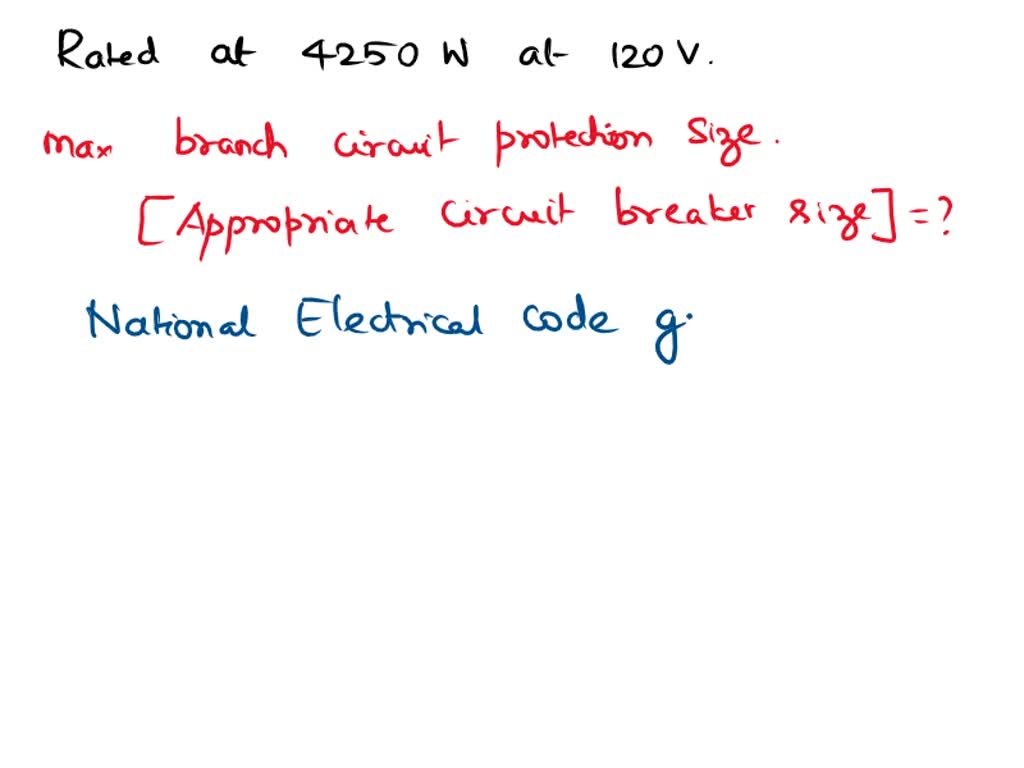 Rated at 4250 W at 120 V.
max branch circuit protection size.
[Appropriate circuit breaker size] = ?
National Electrical code g.